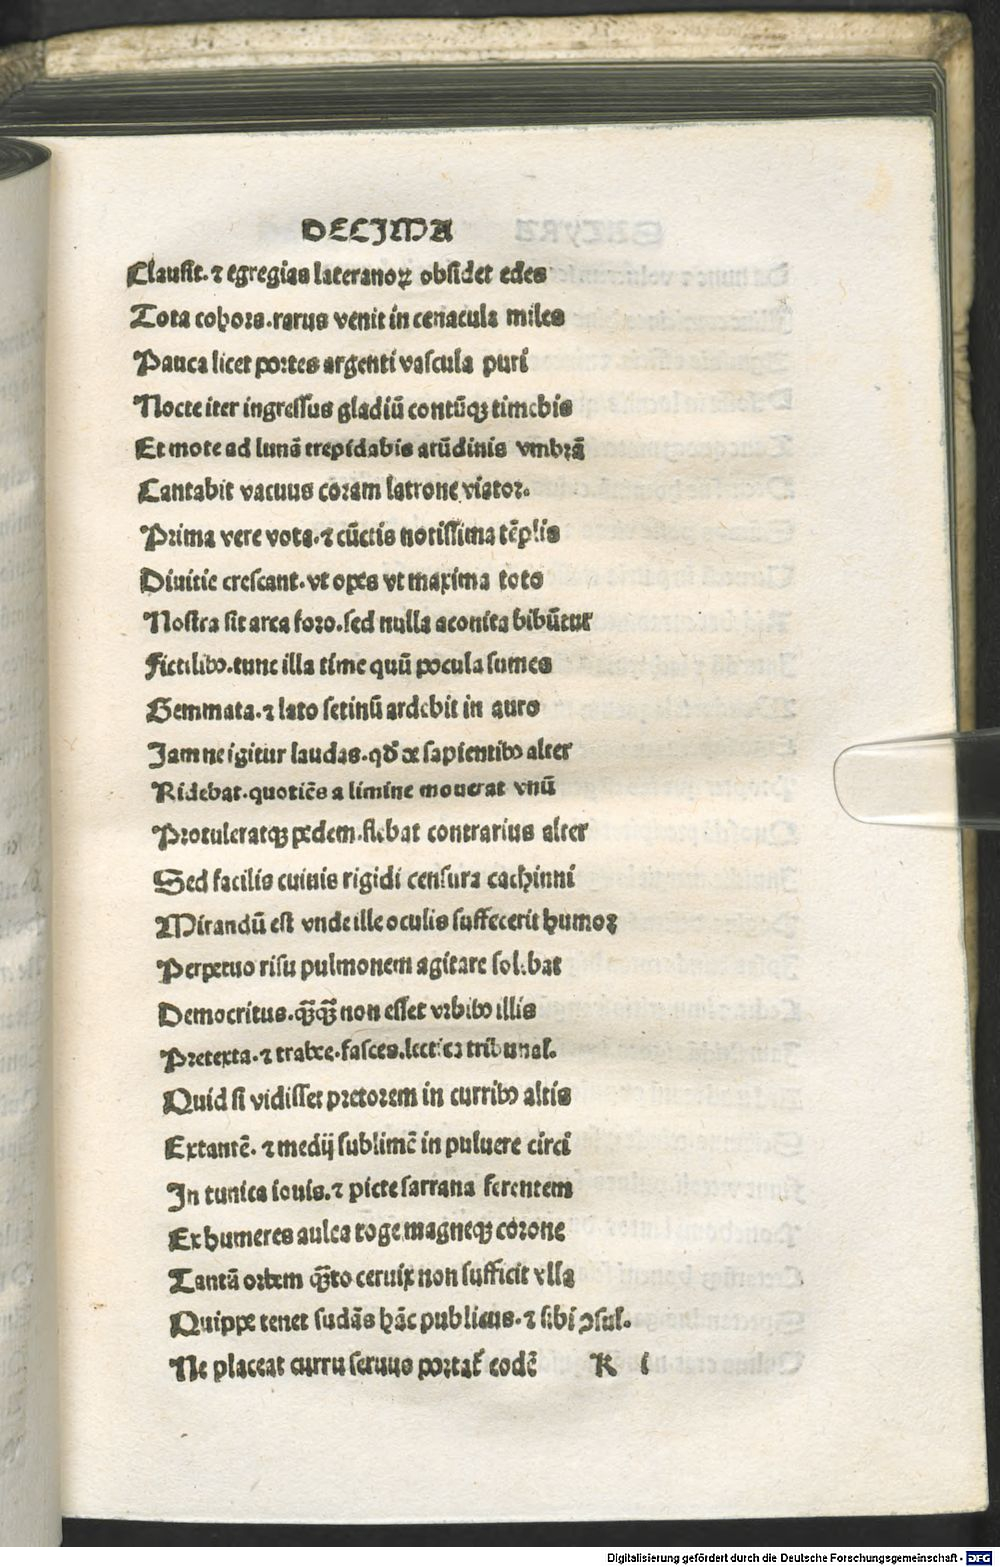 DECIMA
Clausit. ⁊ egregias lateranoꝝ obsidet edes
Tota cohors. rarus venit in cenacula miles
Pauca licet portes argenti vascula puri
Nocte iter ingressus gladiū contūqꝫ timebis
Et mote ad lunā trepidabis arūdinis vmbrā
Cantabit vacuus coram latrone viator.
Prima vere vota. ⁊ cūctis notissima tēplis
Diuitie crescant. vt opes vt maxima toto
Nostra sit arca foro. sed nulla aconita bibūtur
Fictilibꝰ. tunc illa time quū pocula sumes
Gemmata. ⁊ lato setinū ardebit in auro
Iam ne igitur laudas. qđ de sapientibꝰ alter
Ridebat. quotiēs a limine mouerat vnū
Protuleratqꝫ pedem. flebat contrarius alter
Sed facilis cuiuis rigidi censura cachinni
Mirandū est vnde ille oculis suffecerit humoꝛ
Perpetuo risu pulmonem agitare solebat
Democritus. qꝫ̄qꝫ̄ non esset vrbibꝰ illis
Pretexta. ⁊ trabee. fasces. lectica tribunal.
Quid si vidisset pretorem in curribꝰ altis
Extantē. ⁊ medij sublimē in puluere circi
In tunica iouis. ⁊ picte sarrana ferentem
Ex humeres aulea toge magneqꝫ corone
Tantā orbem qꝫ̄to ceruix non sufficit vlla
Quippe tenet sudās hāc publicus. ⁊ sibi ꝯsul.
Ne placeat curru seruus portat᷑ eodē
K i
Digitalisierung gefördert durch die Deutsche Forschungsgemeinschaft - DFG